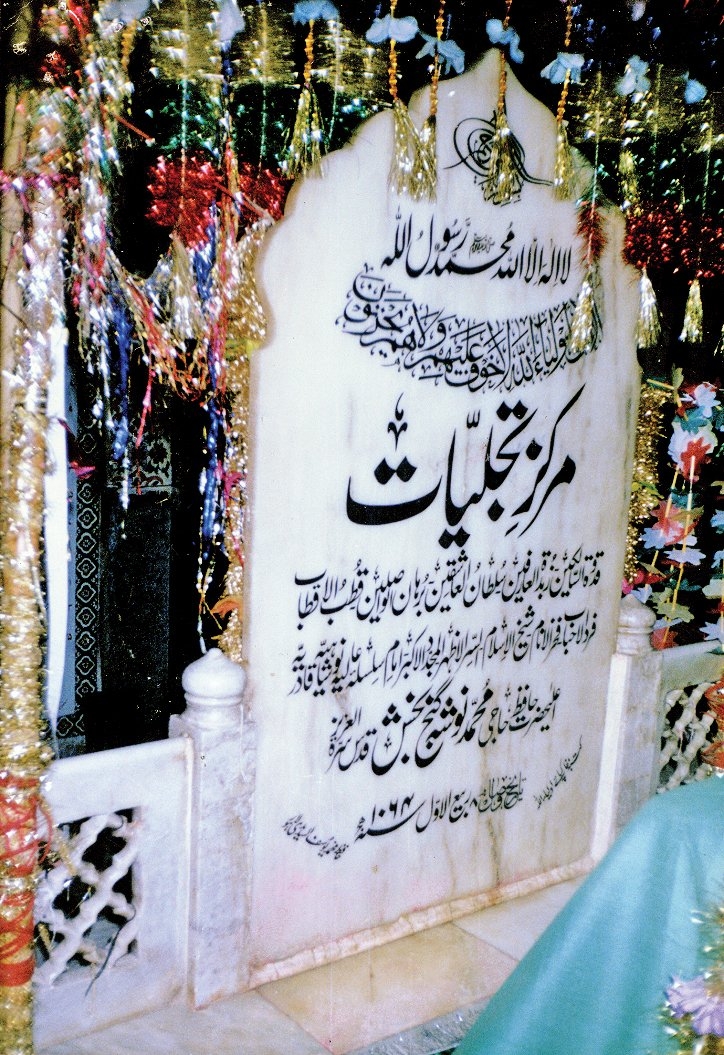 لا اله الا الله محمد رسول الله
الا ان اولیاء الله لا خوف علیهم ولا هم یحزنون
مرکز تجلیّات
قدوۃ السالکین زبدۃ العارفین سلطان العاشقین برہان الواصلین قطب الاقطاب
فرد الاحباب فخر الانام شیخ الاسلام السر الاظہر المجدد الاکبر امام سلسلہ عالیہ نوشاہیہ قادریہ
اعلیحضرت حافظ حاجی محمد نوشہ گنج بخش قدس سرہ العزیز
تاریخ وصال ۸ ربیع الاول سنہ ۱۰۶۴ھ